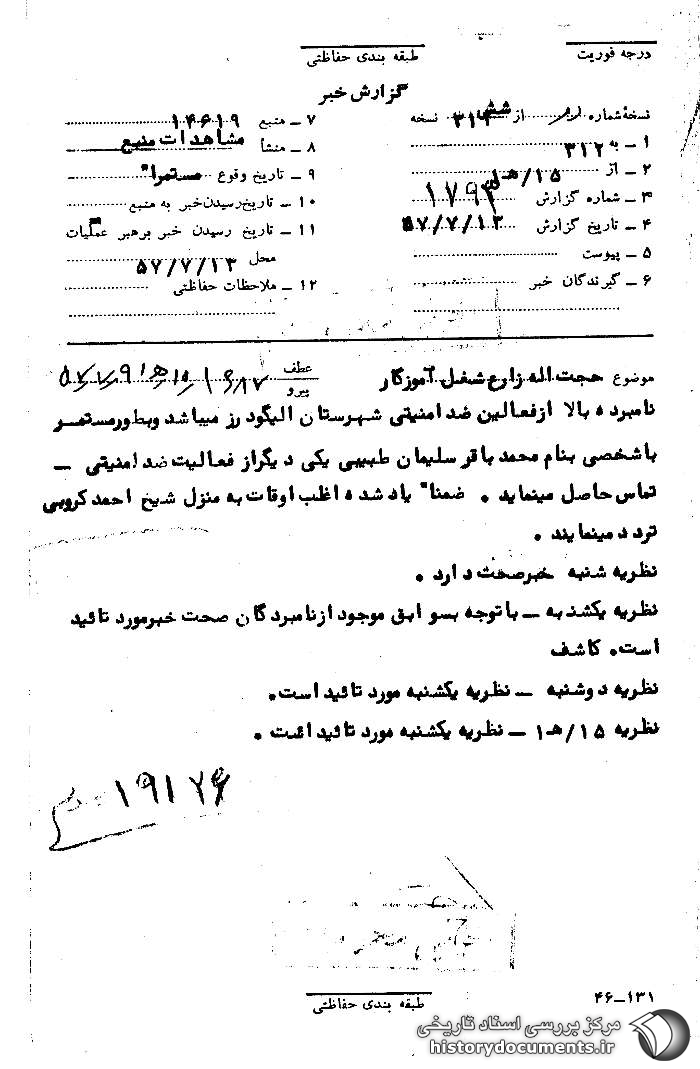 درجه فوریت
طبقه بندی حفاظتی
گزارش خبر
نسخهٔ شماره از شش نسخه
۱ ـ به ۳۱۲
۲ ـ از ۱۵/هـ
۳ ـ شماره گزارش
۴ ـ تاریخ گزارش ۵۷/۷/۱۳
۵ ـ پیوست
۶ ـ گیرندگان خبر
۷ ـ منبع ۱۴۶۱۹
۸ ـ منشأ مشاهدات منبع
۹ ـ تاریخ وقوع مستمرا"
۱۰ ـ تاریخ رسیدن خبر به منبع
۱۱ ـ تاریخ رسیدن خبر برهبر عملیات
محل ۵۷/۷/۱۳
۱۲ ـ ملاحظات حفاظتی
موضوع حجت اله زارع شغل آموزگار
عطف
پیرو
نامبرده بالا ازفعالین ضدامنیتی شهرستان الیگودرز میباشد وبطورمستمر
باشخصی بنام محمد باقر سلیمان طبیبی یکی دیگراز فعالیت ضدامنیتی ـ
تماس حاصل مینماید . ضمنا" یاد شده اغلب اوقات به منزل شیخ احمد کروبی
تردد مینمایند .
نظریه شنبه خبرصحت دارد .
نظریه یکشنبه ـ باتوجه بسوابق موجود ازنامبردگان صحت خبرمورد تائید
است. کاشف
نظریه دوشنبه ـ نظریه یکشنبه مورد تائید است.
نظریه ۱۵/هـ۱ ـ نظریه یکشنبه مورد تائید است .
۱۹۱۷۶
طبقه بندی حفاظتی
۴۶ـ۱۳۱
مرکز بررسی اسناد تاریخی
historydocuments.ir